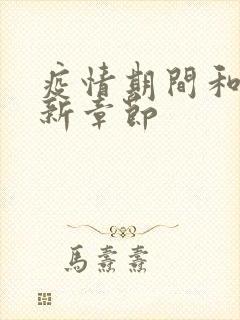 疫情期間和
新章節
馬紊紊